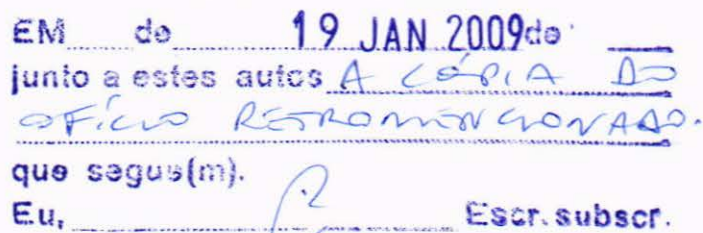 EM de 19 JAN 2009 de
junto a estes autos A CÓPIA DO
OFÍCIO RETROMENCIONADO.
que segue(m).
Eu, Escr. subscr.